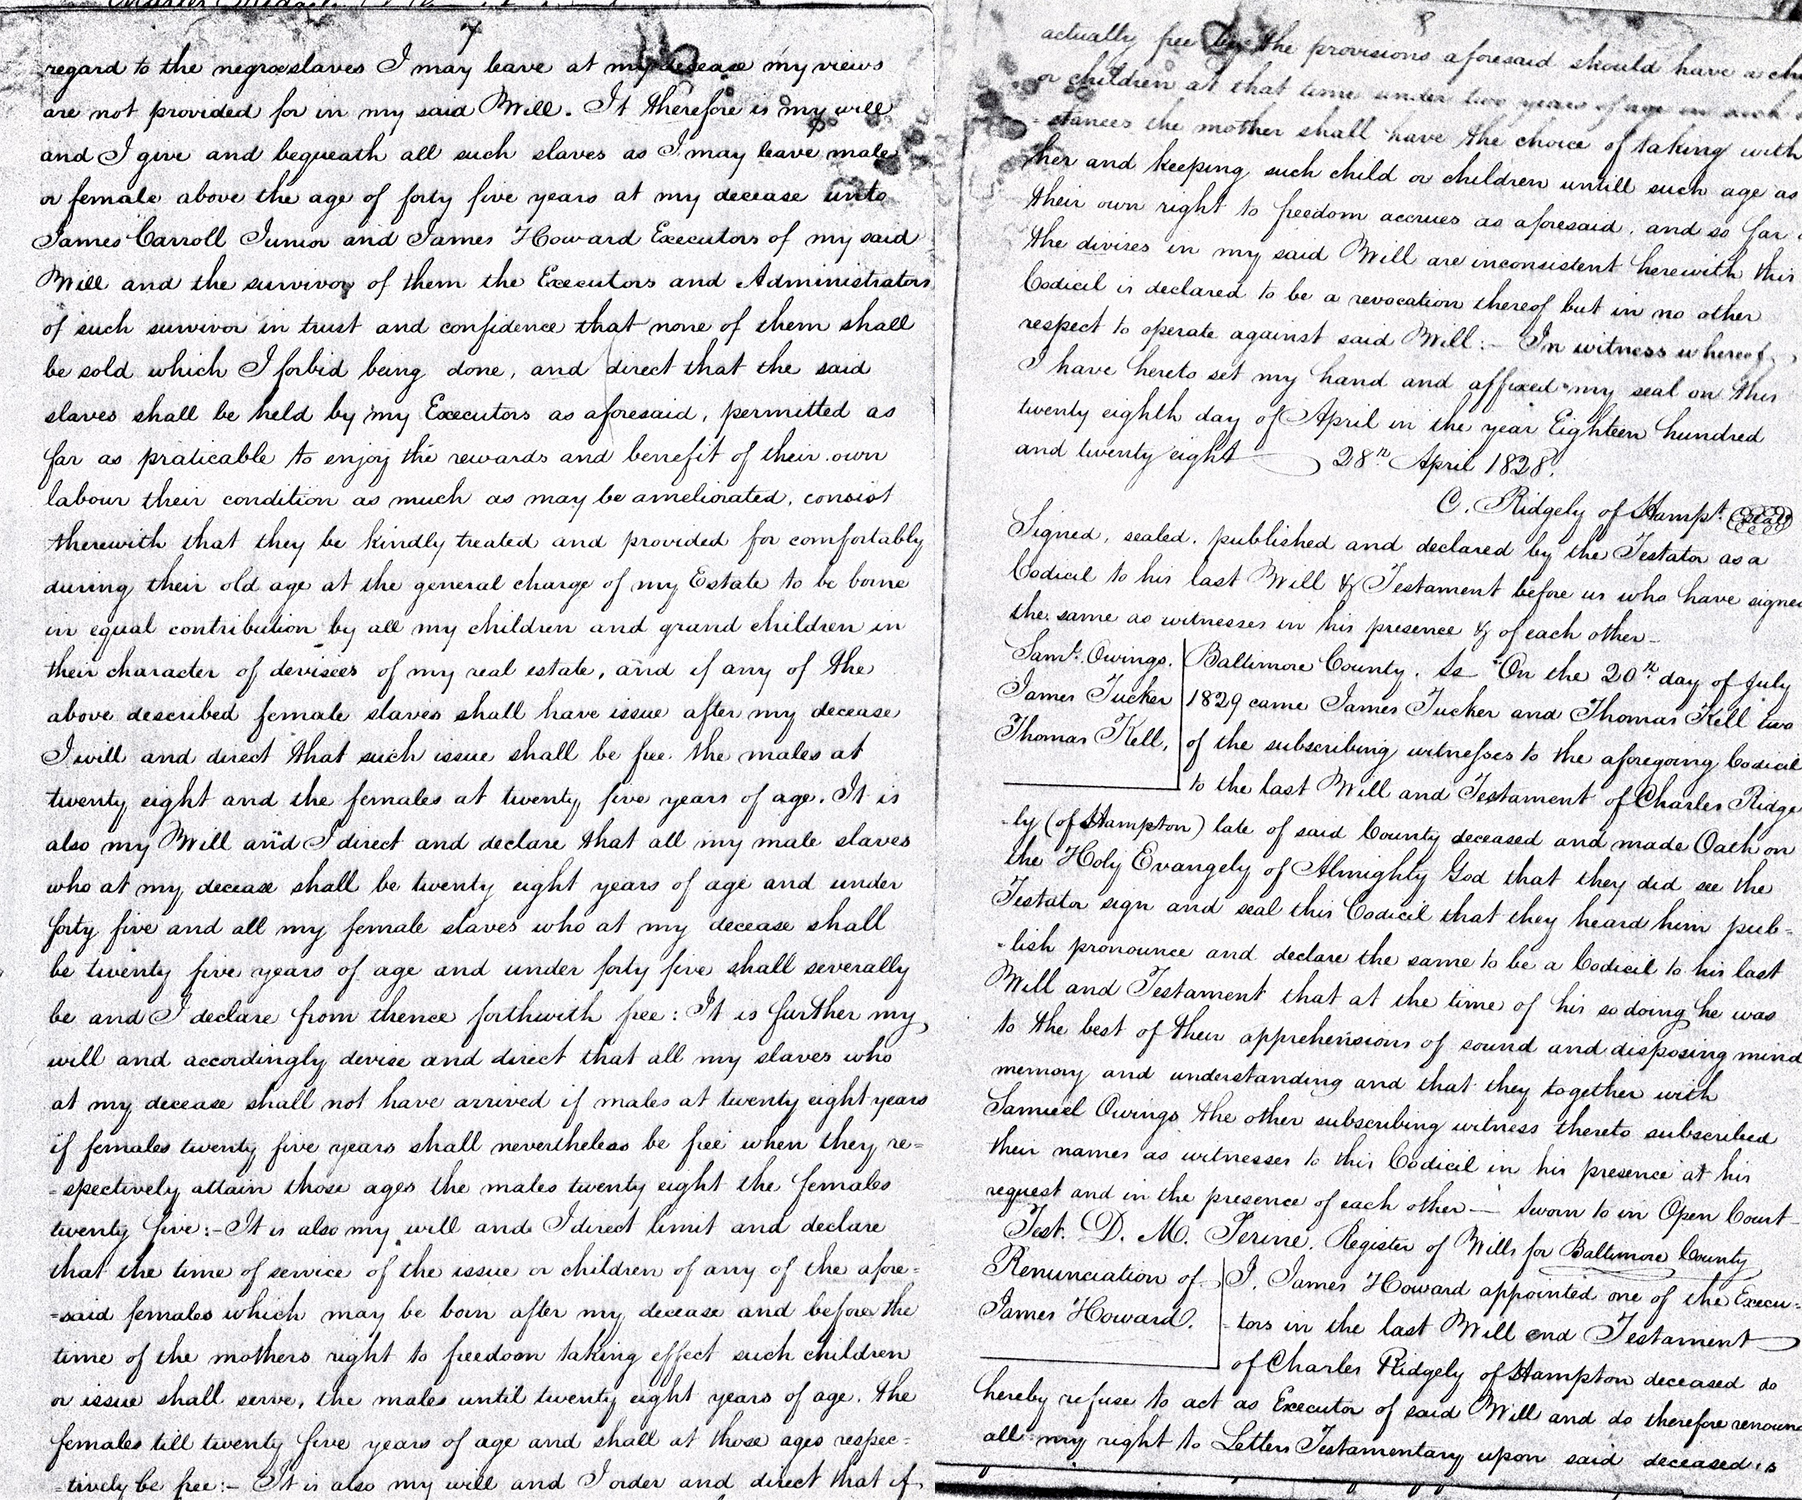 7
regard to the negroe slaves I may leave at my decease my views
are not provided for in my said Will. It therefore is my will
and I give and bequeath all such slaves as I may leave male
or female above the age of forty five years at my decease unto
James Carroll Junior and James Howard Executors of my said
Will and the survivor of them the Executors and Administrators
of such survivor in trust and confidence that none of them shall
be sold which I forbid being done, and direct that the said
slaves shall be held by my Executors as aforesaid, permitted as
far as praticable to enjoy the rewards and benefit of their own
labour their condition as much as may be ameliorated, consist
therewith that they be kindly treated and provided for comfortably
during their old age at the general charge of my Estate to be borne
in equal contribution by all my children and grand children in
their character of devisees of my real estate, and if any of the
above described female slaves shall have issue after my decease
I will and direct that such issue shall be free. the males at
twenty eight and the females at twenty five years of age. It is
also my Will and I direct and declare that all my male slaves
who at my decease shall be twenty eight years of age and under
forty five and all my female slaves who at my decease shall
be twenty five years of age and under forty five shall severally
be and I declare from thence forthwith free: It is further my
will and accordingly devise and direct that all my slaves who
at my decease shall not have arrived if males at twenty eight years
if females twenty five years shall nevertheless be free when they re=
=spectively attain those ages the males twenty eight the females
twenty five:- It is also my will and I direct limit and declare
that the time of service of the issue or children of any of the afore=
=said females which may be born after my decease and before the
time of the mothers right to freedom taking effect such children
or issue shall serve, the males until twenty eight years of age. the
females till twenty five years of age and shall at those ages respec=
=tively be free:- It is also my will and I order and direct that if
8
actually free by the provisions aforesaid should have a chi
or children at that time under two years of age in such
=stances the mother shall have the choice of taking with
her and keeping such child or children untill such age as
their own right to freedom accrues as aforesaid. and so far
the divises in my said Will are inconsistent herewith this
Codicil is declared to be a revocation thereof but in no other
respect to operate against said Will:- In witness whereof
I have hereto set my hand and affixed my seal on this
twenty eighth day of April in the year Eighteen hundred
and twenty eight 28th April 1828.
C. Ridgely of Hampt. Seal
Signed, sealed. published and declared by the Testator as a
Codicil to his last Will & Testament before us who have signed
the same as witnesses in his presence & of each other-
Saml. Owings.
James Tucker
Thomas Kell,
Baltimore County. Ss On the 20th day of July
1829 came James Tucker and Thomas Kell two
of the subscribing witnesses to the aforegoing Codicil
to the last Will and Testament of Charles Ridge
-ly (of Hampton) late of said County deceased and made Oath on
the Holy Evangely of Almighty God that they did see the
Testator sign and seal this Codicil that they heard him pub-
-lish pronounce and declare the same to be a Codicil to his last
Will and Testament that at the time of his so doing he was
to the best of their apprehensions of sound and disposing mind
memory and understanding and that they together with
Samuel Owings the other subscribing witness thereto subscribed
their names as witnesses to this Codicil in his presence at his
request and in the presence of each other- Sworn to in Open Court-
Test. D. M. Perine. Register of Wills for Baltimore County
Renunciation of
James Howard.
I, James Howard appointed one of the Execu-
-tors in the last Will and Testament
of Charles Ridgely of Hampton deceased do
hereby refuse to act as Executor of said Will and do therefore renounc
all my right to Letters Testamentary upon said deceased's